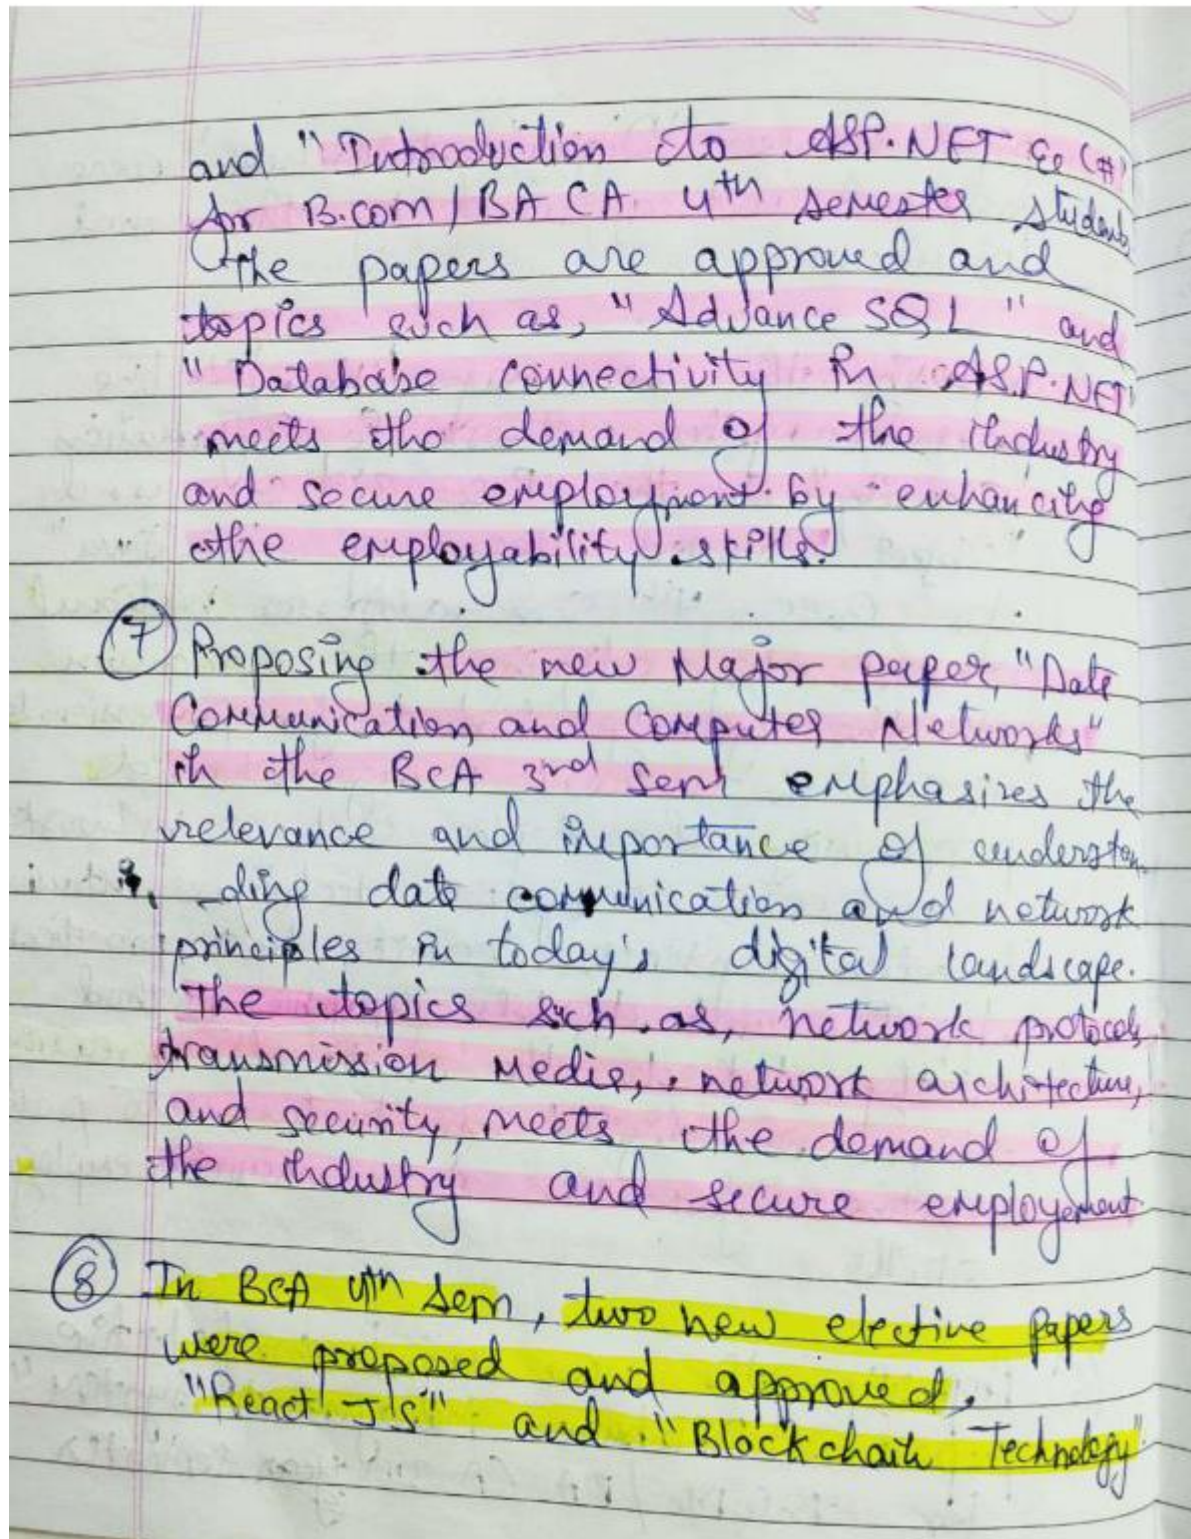 and "Introduction to ASP.NET & C#"
for B.com/BA CA 4th semester students
The papers are approved and
topics such as, "Advance SQL" and
"Database connectivity in ASP.NET"
meets the demand of the industry
and secure employment by enhancing
the employability skills.
7 Proposing the new Major paper, "Data
Communication and Computer Networks"
in the BCA 3rd Sem emphasizes the
relevance and importance of understan
-ding data communication and network
principles in today's digital landscape.
The topics such as, network protocols,
transmission media, network architecture,
and security, meets the demand of
the industry and secure employement
8 In BCA 4th Sem, two new elective papers
were proposed and approved,
"React JS" and "Blockchain Technology"